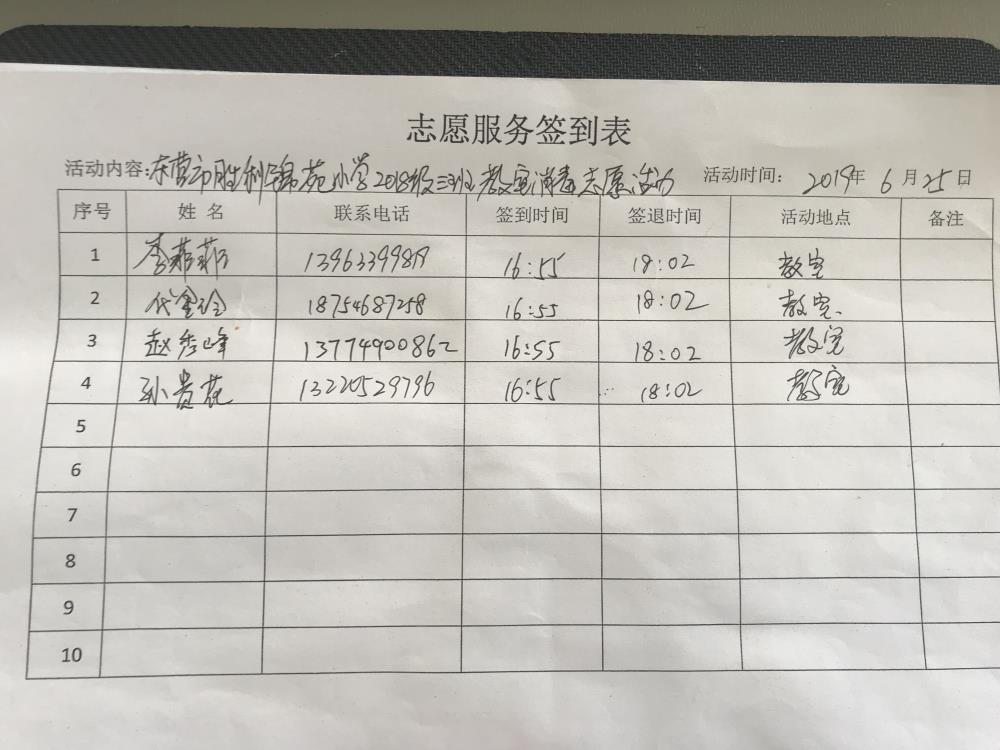 志愿服务签到表
活动内容:东营市胜利锦苑小学2018级三班教室消毒志愿活动 活动时间: 2019年 6 月 25 日
序号 姓 名 联系电话 签到时间 签退时间 活动地点 备注
1 李菲菲 16:55 18:02 教室
2 代金玲 18754687258 16:55 18:02 教室.
3 赵秀峰 13774900862 16:55 18:02 教室
4 孙贵花 13220529796 16:55 18:02 教室
5
6
7
8
9
10